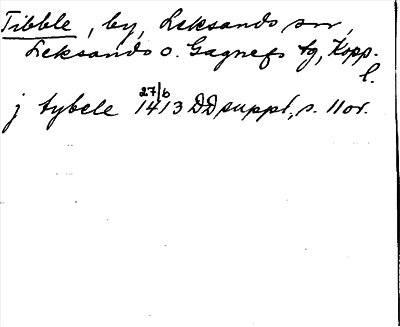 Tibble, by, Leksands sn,
Leksands o. Gagnefs tg, Kopp.
l.
27/6
j tybele 1413 DD suppl, s. 11 or.